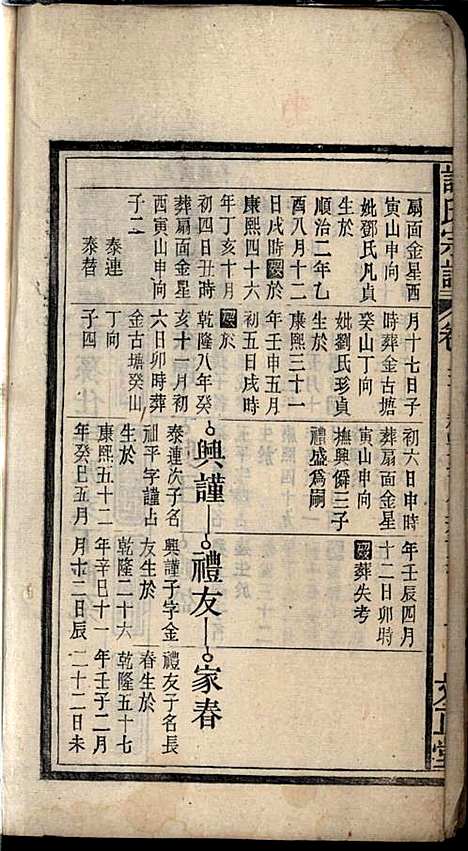 氏宗譜
扇面金星西
寅山申向
妣鄧氏凡貞
生於
順治二年乙
酉八月十二
日戌時歿於
康熙四十六
年丁亥十月
初四日丑時
葬扇面金星
西寅山申向
子二
泰連
泰替
月十七日子
時葬金古塘
癸山丁向
妣劉氏珍貞
生於
康熙三十一
年壬申五月
初五日戌時
歿於
乾隆八年癸
亥十一月初
六日卯時葬
金古塘癸山
丁向
子四
初六日申時
葬扇面金星
寅山申向
撫興僻三子
禮盛爲嗣
興謹
泰連次子名
祉平字謹占
生於
康熙五十二
年癸巳五月
年壬辰四月
十二日卯時
歿葬失考
禮友
興謹子字金
友生於
乾隆二十六
年辛巳十一
月十二日辰
家春
禮友子名長
春生於
乾隆五十七
年壬子二月
二十二日未
堂